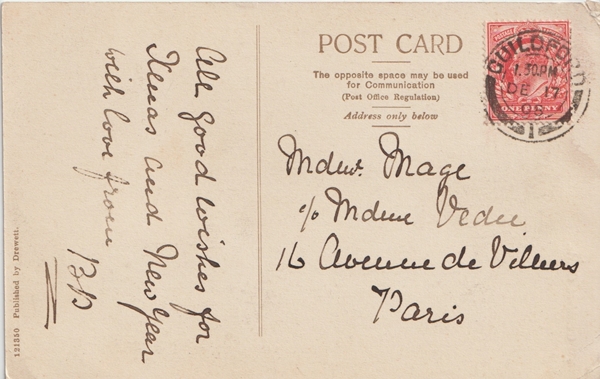 All good wishes for
Xmas and New Year
with love from
POST CARD
The opposite space may be used
for Communication
(Post Office Regulation)
Address only below
GUILDFORD
1.30PM
DE 17
1
ONE PENNY
Mage
c/o Mdme
16 Avenue de Villiers
Paris
121350 Published by Drewett.